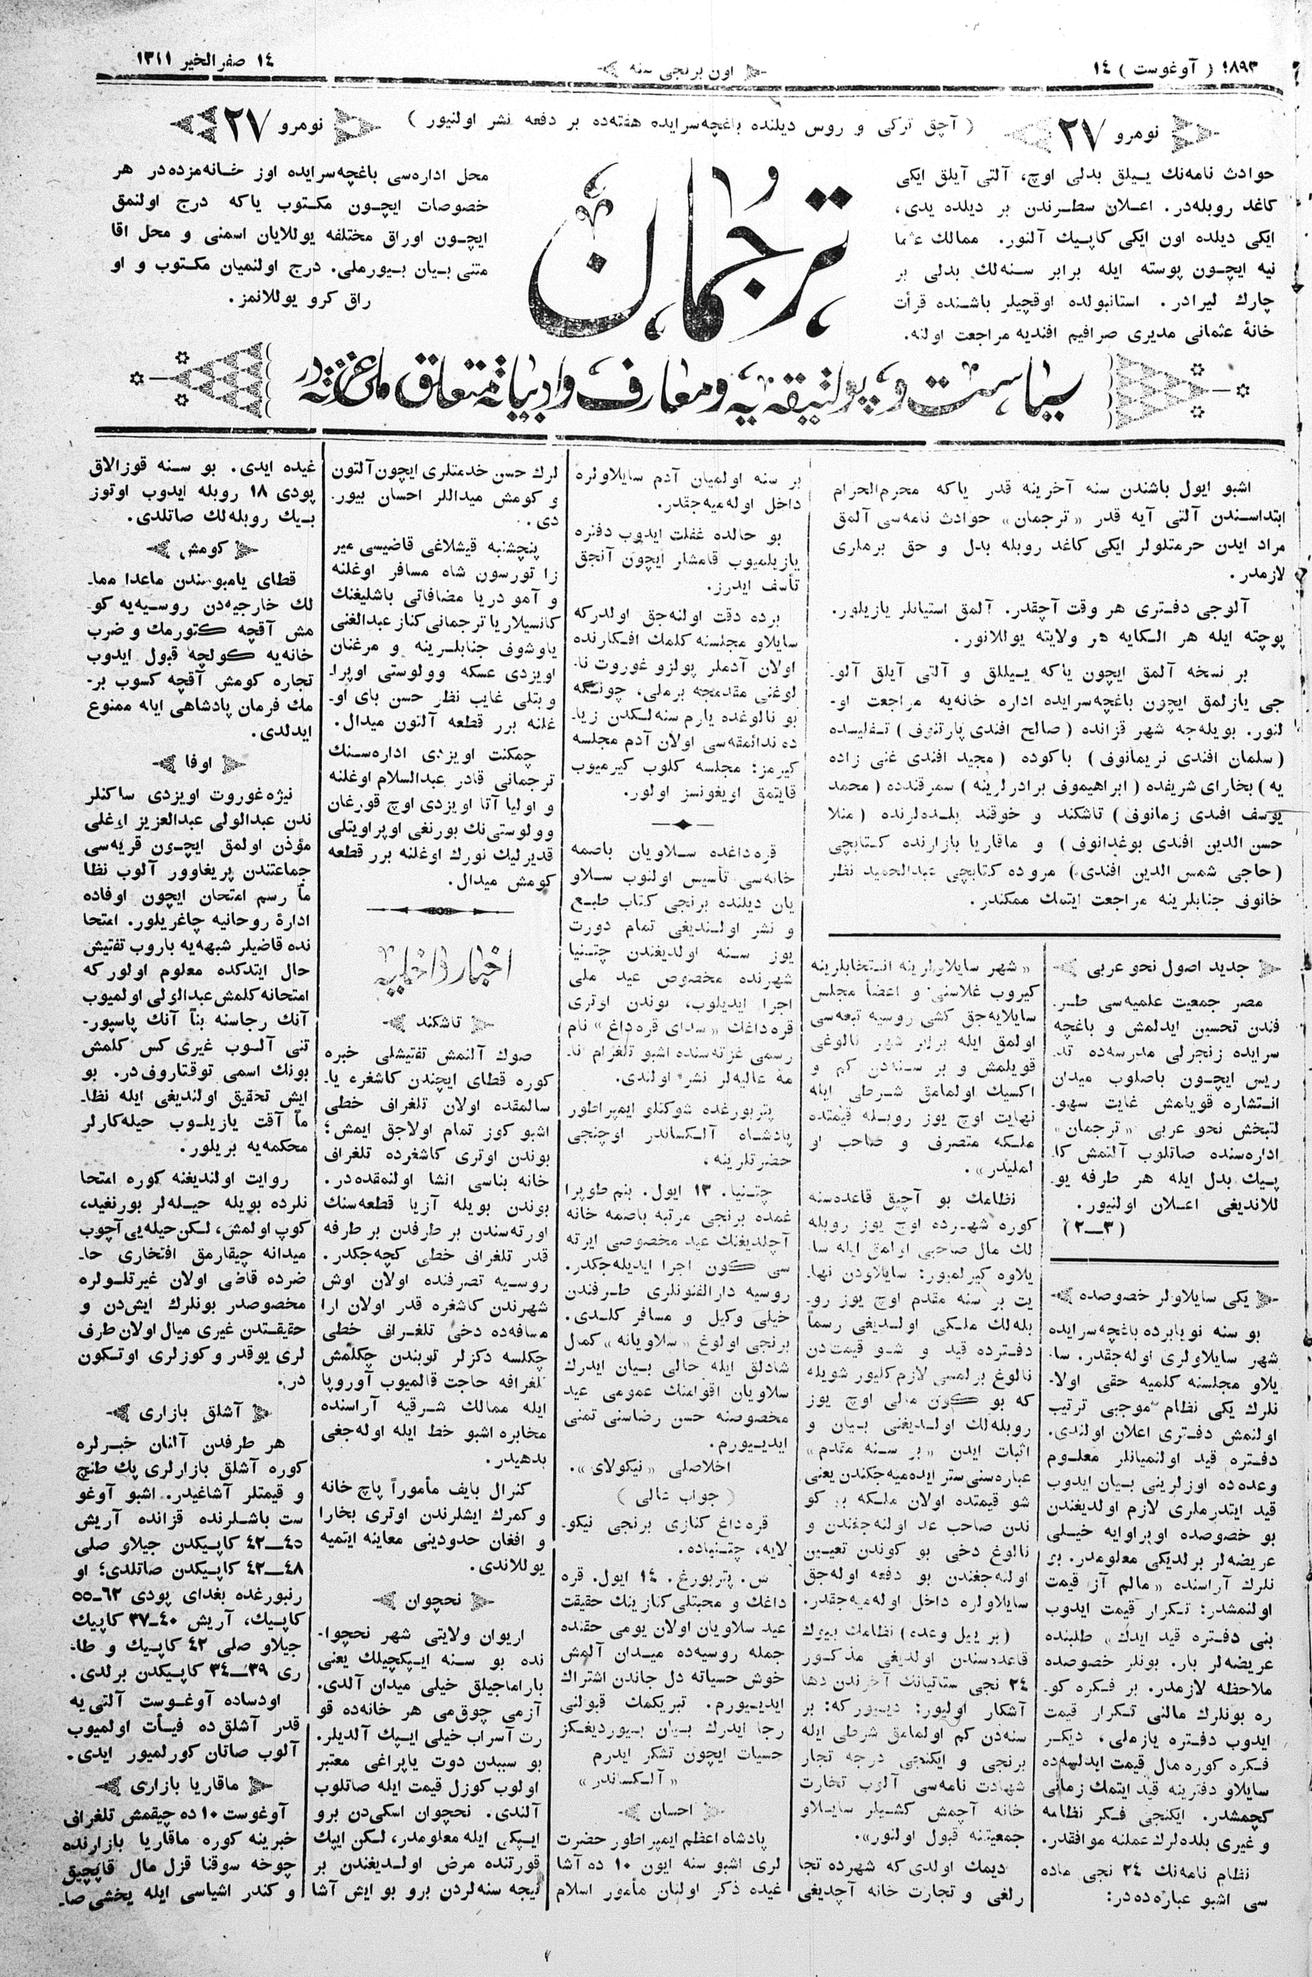 ۱۸۹۳ ( آوغوست ) ۱٤
اون برنجی سنه
۱٤ صفرالخیر ۱۳۱۱
نومرو ۲۷
( آچق ترکی و روس دیلنده باغچه‌سرایده هفته‌ده بر دفعه نشر اولنیور )
نومرو ۲۷
حوادث نامه‌نك ییلق بدلی اوچ، آلتی آیلق ایکی
کاغد روبله‌در. اعلان سطرندن بر دیلده یدی،
ایکی دیلده اون ایکی کاپیك آلنور. ممالك عثما
نیه ایچون پوسته ایله برابر سنه‌لك بدلی بر
چارك لیرادر. استانبولده اوقچیلر باشنده قرأت
خانۀ عثمانی مدیری صرافیم افندیه مراجعت اولنه.
ترجمان
محل اداره‌سی باغچه‌سرایده اوز خانه‌مزده‌در هر
خصوصات ایچون مکتوب یاکه درج اولنمق
ایچون اوراق مختلفه یوللایان اسمنی و محل اقا
متنی بیان بیورملی. درج اولنمیان مکتوب و او
راق کرو یوللانمز.
سیاست و پولتیقه‌یه و معارف و ادبیاته متعلق ملی غزته‌در
اشبو ایول باشندن سنه آخرینه قدر یاکه محرم‌الحرام
ابتداسندن آلتی آیه قدر «ترجمان» حوادث نامه‌سی آلمق
مراد ایدن حرمتلولر ایکی کاغد روبله بدل و حق برملری
لازمدر.
آلوجی دفتری هر وقت آچقدر. آلمق استیانلر یازیلور.
پوچته ایله هر الکایه هر ولایته یوللانور.
بر نسخه آلمق ایچون یاکه ییللق و آلتی آیلق آلو-
جی یازلمق ایچون باغچه‌سرایده اداره خانه‌یه مراجعت او-
لنور. بویله‌جه شهر قزانده (صالح افندی پارتنوف) تفلیسده
(سلمان افندی نریمانوف) باکوده (مجید افندی غنی زاده
یه) بخارای شریفده (ابراهیموف برادرلرینه) سمرقندده (محمد
یوسف افندی زمانوف) تاشکند و خوقند بلده‌لرنده (منلا
حسن الدین افندی بوغدانوف) و ماقاریا بازارنده کتابچی
(حاجی شمس الدین افندی) مروده کتابچی عبدالحمید نظر
خانوف جنابلرینه مراجعت ایتمك ممکندر.
جدید اصول نحو عربی
مصر جمعیت علمیه‌سی طر-
فندن تحسین ایدلمش و باغچه
سرایده زنجرلی مدرسه‌ده تد-
ریس ایچون باصلوب میدان
انتشاره قویامش غایت سهو-
لتبخش نحو عربی «ترجمان»
اداره‌سنده صاتلوب آلتمش کا-
پیك بدل ایله هر طرفه یو-
للاندیغی اعلان اولنیور.
(۳—۲)
یکی سایلاولر خصوصده
بو سنه نویابرده باغچه‌سرایده
شهر سایلاولری اوله‌جقدر. سا-
یلاو مجلسنه کلمیه حقی اولا-
نلرك یکی نظام موجبی ترتیب
اولنمش دفتری اعلان اولندی.
دفتره قید اولنمیانلر معلوم
وعده‌ده اوزلرینی بیان ایدوب
قید ایتدرملری لازم اولدیغندن
بو خصوصده اوپراوایه خیلی
عریضه‌لر برلدیکی معلومدر. بو
نلرك آراسنده «مالم آز قیمت
اولنمشدر: تکرار قیمت ایدوب
بنی دفتره قید ایدك» طلبنده
عریضه‌لر بار. بونلر خصوصده
ملاحظه لازمدر. بر فکره کو-
ره بونلرك مالنی تکرار قیمت
ایدوب دفتره یازملی، دیکر
فکره کوره مال قیمت ایدلسه‌ده
سایلاو دفترینه قید ایتمك زمانی
کچمشدر. ایکنجی فکر نظامه
و غیری بلده‌لرك عملنه موافقدر.
نظام نامه‌نك ۲٤ نجی ماده
سی اشبو عباره‌ده‌در:
«شهر سایلاولرینه انتخابلرینه
کیروب غلاسنی و اعضأ مجلس
سایلایه‌جق کشی روسیه تبعه‌سی
اولمق ایله برابر شهر نالوغی
قویلمش و بر سنه‌دن کم و
اکسیك اولمامق شرطی ایله
نهایت اوچ یوز روبله قیمتده
ملکه متصرف و صاحب او
لملیدر».
نظامك بو آچیق قاعده‌سنه
کوره شهرده اوچ یوز روبله
لك مال صاحبی اولمق ایله سا-
یلاوه کیرلمیور: سایلاودن نها-
یت بر سنه مقدم اوچ یوز رو-
بله‌لك ملکی اولدیغی رسماً
دفترده قید و شو قیمت‌دن
نالوغ برلمسی لازم کلیور شویله
که بو کون مالی اوچ یوز
روبله‌لك اولدیغنی بیان و
اثبات ایدن «بر سنه مقدم»
عباره‌سنی ستر ایده‌میه‌جکندن یعنی
شو قیمتده اولان ملکه بر کو
ندن صاحب عد اولنه‌جغندن و
نالوغ دخی بو کوندن تعیین
اوله‌جغندن بو دفعه اوله‌جق
سایلاوره داخل اوله‌میه‌جقدر.
(بر ییل وعده) نظامك بیوك
قاعده‌سندن اولدیغی مذکور
۲٤ نجی ستاتیانك آخرندن دها
آشکار اولیور: دیور که: بر
سنه‌دن کم اولمامق شرطی ایله
برنجی و ایکنجی درجه تجار
شهادت نامه‌سی آلوب تخارت
خانه آچمش کشیلر سایلاو
جمعیتنه قبول اولنور».
دیمك اولدی که شهرده تجا
رلغی و تجارت خانه آچدیغی
بر سنه اولمیان آدم سایلاولره
داخل اوله‌میه‌جقدر.
بو حالده غفلت ایدوب دفتره
یازیلمیوب قامشار ایچون آنجق
تأسف ایدرز.
برده دقت اولنه‌جق اولدرکه
سایلاو مجلسنه کلمك افکارنده
اولان آدملر پولزو غوروت نا-
لوغنی مقدمجه برملی، چونکه
بو نالوغده یارم سنه‌لکدن زیا-
ده ندائمقه‌سی اولان آدم مجلسه
کیرمز: مجلسه کلوب کیرمیوب
قایتمق اویغونسز اولور.
قره‌داغده سلاویان باصمه
خانه‌سی تأسیس اولنوب سلاو
یان دیلنده برنجی کتاب طبع
و نشر اولندیغی تمام دورت
یوز سنه اولدیغندن چتنیا
شهرنده مخصوص عید ملی
اجرا ایدیلوب، بوندن اوتری
قره‌داغك «سدای قره‌داغ» نام
رسمی غزته‌سنده اشبو تلغرام نا-
مۀ عالیه‌لر نشر اولندی.
پتربورغده شوکتلو ایمپراطور
پادشاه آلکساندر اوچنجی
حضرتلرینه.
چتنیا. ۱۳ ایول. بنم طوپرا
غمده برنجی مرتبه باصمه خانه
آچلدیغنك عید مخصوصی ایرته
سی کون اجرا ایدیله‌جکدر.
روسیه دارالفنونلری طرفندن
خیلی وکیل و مسافر کلدی.
برنجی اولوغ «سلاویانه» کمال
شادلق ایله حالی بیان ایدرك
سلاویان اقوامنك عمومی عید
مخصوصنه حسن رضاسنی تمنی
ایدیورم.
اخلاصلی «نیکولای».
( جواب عالی )
قره‌داغ کنازی برنجی نیکو-
لایه، چتنیاده.
س. پتربورغ. ۱٤ ایول. قره
داغك و محبتلی کنازینك حقیقت
عید سلاویان اولان یومی حقنده
جمله روسیه‌ده میدان آلمش
خوش حسیاته دل جاندن اشتراك
ایدیورم. تبریکمك قبولنی
رجا ایدرك بیان بیوردیغکز
حسیات ایچون تشکر ایدرم
«آلکساندر»
احسان
پادشاه اعظم ایمپراطور حضرت
لری اشبو سنه ایون ۱۰ ده آشا
غیده ذکر اولنان مأمور اسلام
لرك حسن خدمتلری ایچون آلتون
و کومش میداللر احسان بیور-
دی.
پنچشنبه قیشلاغی قاضیسی میر
زا تورسون شاه مسافر اوغلنه
و آمو دریا مضافاتی باشلیغنك
کانسیلاریا ترجمانی کناز عبدالغنی
یاوشوف جنابلرینه و مرغنان
اویزدی عسکه وولوستی اوپرا-
ویتلی غایب نظر حسن بای او-
غلنه برر قطعه آلتون میدال.
چمکنت اویزدی اداره‌سنك
ترجمانی قادر عبدالسلام اوغلنه
و اولیا آتا اویزدی اوچ قورغان
وولوستی‌نك بورنغی اوپراویتلی
قدیرلیك نورك اوغلنه برر قطعه
کومش میدال.
اخبار داخلیه
تاشکند
صوك آلنمش تفتیشلی خبره
کوره قطای ایچندن کاشغره یا-
سالمقده اولان تلغراف خطی
اشبو کوز تمام اولاجق ایمش؛
بوندن اوتری کاشغرده تلغراف
خانه بناسی انشا اولنمقده‌در.
بوندن بویله آزیا قطعه‌سنك
اورته‌سندن بر طرفدن بر طرفه
قدر تلغراف خطی کچه‌جکدر.
روسیه تصرفنده اولان اوش
شهرندن کاشغره قدر اولان ارا
مسافه‌ده دخی تلغراف خطی
چکلسه دکزلر توبندن چکلمش
تلغرافه حاجت قالمیوب آوروپا
ایله ممالك شرقیه آراسنده
مخابره اشبو خط ایله اوله‌جغی
بدهیدر.
کنرال بایف مأموراً پاچ خانه
و کمرك ایشلرندن اوتری بخارا
و افغان حدودینی معاینه ایتمیه
یوللاندی.
نحچوان
اریوان ولایتی شهر نحچوا-
نده بو سنه ایپکچیلك یعنی
باراماجیلق خیلی میدان آلدی.
آزمی چوق‌می هر خانه‌ده قو
رت آسراب خیلی ایپك آلدیلر.
بو سببدن دوت یاپراغی معتبر
اولوب کوزل قیمت ایله صاتلوب
آلندی. نحچوان اسکی‌دن برو
ایپکی ایله معلومدر، لکن ایپك
قورتنده مرض اولدیغندن بر
نیجه سنه‌لردن برو بو ایش آشا
غیده ایدی. بو سنه قوزالاق
پودی ۱۸ روبله ایدوب اوتوز
بیك روبله‌لك صاتلدی.
کومش
قطای یامبوسندن ماعدا مما-
لك خارجیه‌دن روسیه‌یه کو-
مش آقچه کتورمك و ضرب
خانه‌یه کولچه قبول ایدوب
تجاره کومش آقچه کسوب بر-
مك فرمان پادشاهی ایله ممنوع
ایدلدی.
اوفا
نیژه غوروت اویزدی ساکنلر
ندن عبدالولی عبدالعزیز اوغلی
مؤذن اولمق ایچون قریه‌سی
جماعتندن پریغاوور آلوب نظا
ماً رسم امتحان ایچون اوفاده
ادارۀ روحانیه چاغریلور. امتحا
نده قاضیلر شبهه‌یه باروب تفتیش
حال ایتدکده معلوم اولور که
امتحانه کلمش عبدالولی اولمیوب
آنك رجاسنه بنأ آنك پاسپور-
تنی آلوب غیری کس کلمش
بونك اسمی توقتاروف‌در. بو
ایش تحقیق اولندیغی ایله نظا-
ماً آقت یازیلوب حیله‌کارلر
محکمه‌یه بریلور.
روایت اولندیغنه کوره امتحا
نلرده بویله حیله‌لر بورنغیده،
کوپ اولمش، لکن حیله‌یی آچوب
میدانه چیقارمق افتخاری حا-
ضرده قاضی اولان غیرتلولره
مخصوصدر بونلرك ایش‌دن و
حقیقتدن غیری میال اولان طرف
لری یوقدر و کوزلری اوتکون
در.
آشلق بازاری
هر طرفدن آلنان خبرلره
کوره آشلق بازارلری پك طنچ
و قیمتلر آشاغیدر. اشبو آوغو
ست باشلرنده قزانده آریش
٤٥—٤۲ کاپیکدن جیلاو صلی
٤۸—٤۲ کاپیکدن صاتلدی؛ او
رنبورغده بغدای پودی ٦۲—٥٥
کاپیك، آریش ٤۰—۳۷ کاپیك
جیلاو صلی ٤۲ کاپیك و طا-
ری ۳۹—۳٤ کاپیکدن برلدی.
اودساده آوغوست آلتی‌یه
قدر آشلق‌ده فیأت اولمیوب
آلوب صاتان کورلمیور ایدی.
ماقاریا بازاری
آوغوست ۱۰ ده چیقمش تلغراف
خبرینه کوره ماقاریا بازارنده
چوخه سوقنا قزل مال قاپچیق
و کندر اشیاسی ایله یخشی صا-